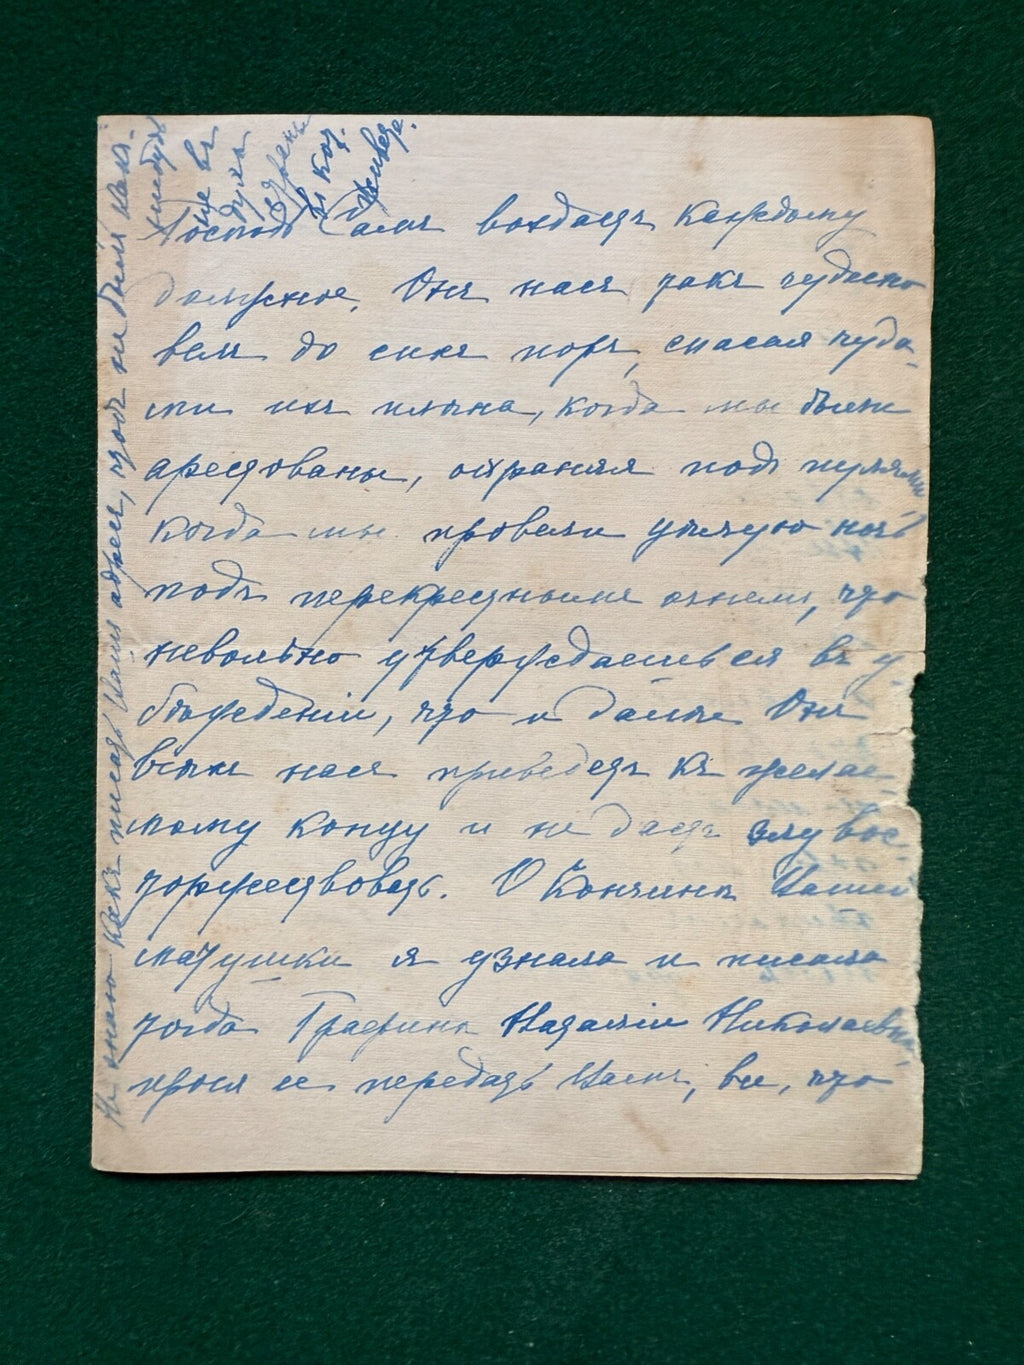 Господь Самъ воздастъ каждому
должное. Онъ насъ такъ чудесно
велъ до сихъ поръ, спасая чуда-
ми изъ плѣна, когда мы были
арестованы, охраняя подъ пулями
когда мы провели цѣлую ночь
подъ перекрестнымъ огнемъ, что
невольно утверждаешься въ у-
бѣжденіи, что и далѣе Онъ
всѣхъ насъ приведетъ къ желае-
мому концу и не дастъ злу вос-
торжествовать. О кончинѣ Вашей
матушки я узнала и писала
тогда Графинѣ Наталіи Николаевнѣ,
прося ее передать Вамъ, все, что
Не знаю какъ писать Вамъ адресъ, чтобъ не былъ